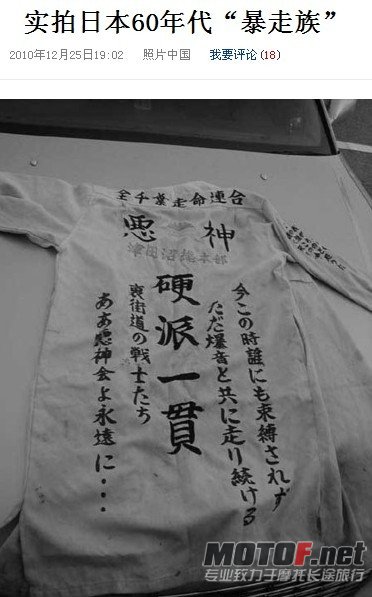 实拍日本60年代“暴走族”
2010年12月25日19:02 照片中国 我要评论(18)
全千葉走命連合
悪神
津田沼総本部
今この時誰にも束縛されず
ただ爆音と共に走り続ける
硬派一貫
裏街道の戦士たち
ああ悪神会よ永遠に・・・
MOTOF.net
专业致力于摩托长途旅行